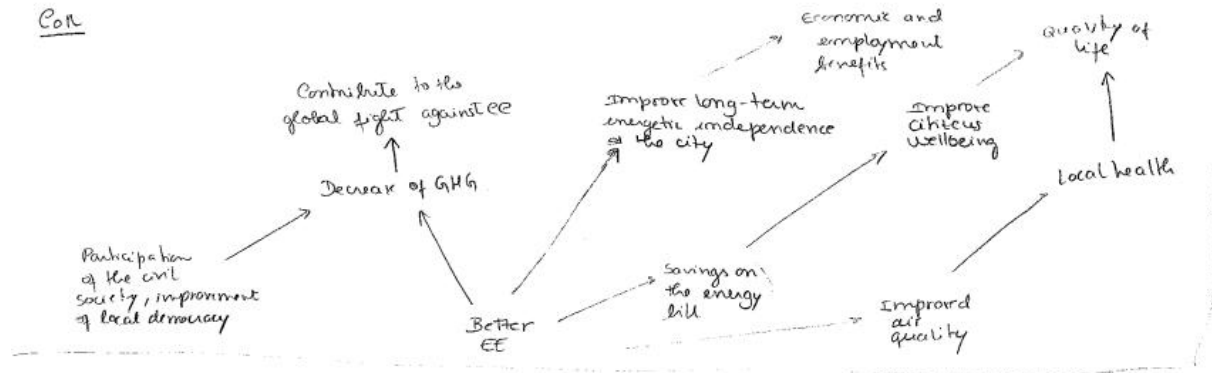 Con
Contribute to the
global fight against CC
Decrease of GHG
Participation
of the civil
society, improvment
of local democracy
Better
EE
Improve long-term
energetic independence
of the city
Economic and
employment
benefits
Savings on
the energy
bill
Improve
citizens
wellbeing
Quality of
life
Local health
Improved
air
quality